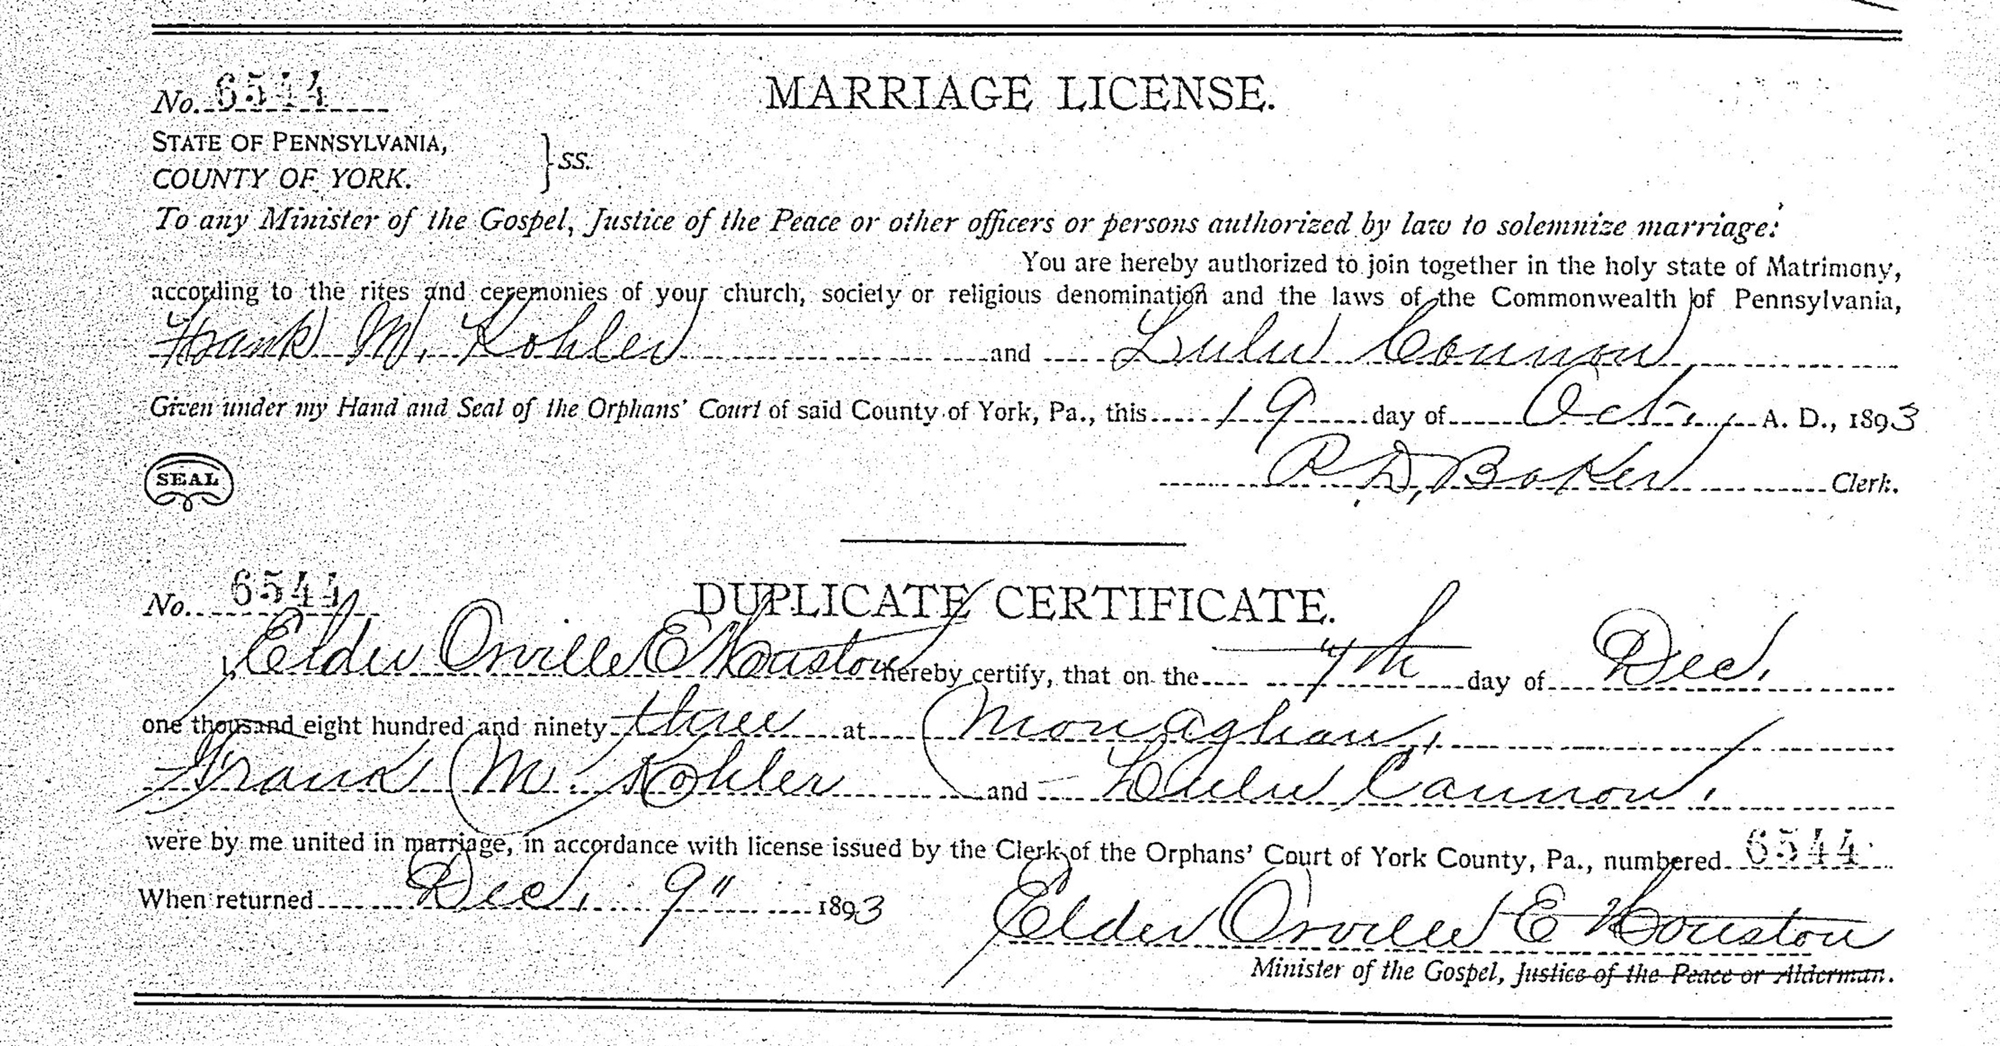 No. 6544
MARRIAGE LICENSE.
STATE OF PENNSYLVANIA,
COUNTY OF YORK.
} SS.
To any Minister of the Gospel, Justice of the Peace or other officers or persons authorized by law to solemnize marriage:
You are hereby authorized to join together in the holy state of Matrimony,
according to the rites and ceremonies of your church, society or religious denomination and the laws of the Commonwealth of Pennsylvania,
Frank M. Kohler and Lulu Connon
Given under my Hand and Seal of the Orphans' Court of said County of York, Pa., this 19 day of Oct. A. D., 1893
SEAL
R. D. Baker Clerk.
No. 6544
DUPLICATE CERTIFICATE.
I, Elder Orville E Houston hereby certify, that on the 7th day of Dec.
one thousand eight hundred and ninety three at Monaghan,
Frank M Kohler and Lulu Cannon,
were by me united in marriage, in accordance with license issued by the Clerk of the Orphans' Court of York County, Pa., numbered 6544
When returned Dec. 9" 1893
Elder Orville E Houston
Minister of the Gospel, Justice of the Peace or Alderman.